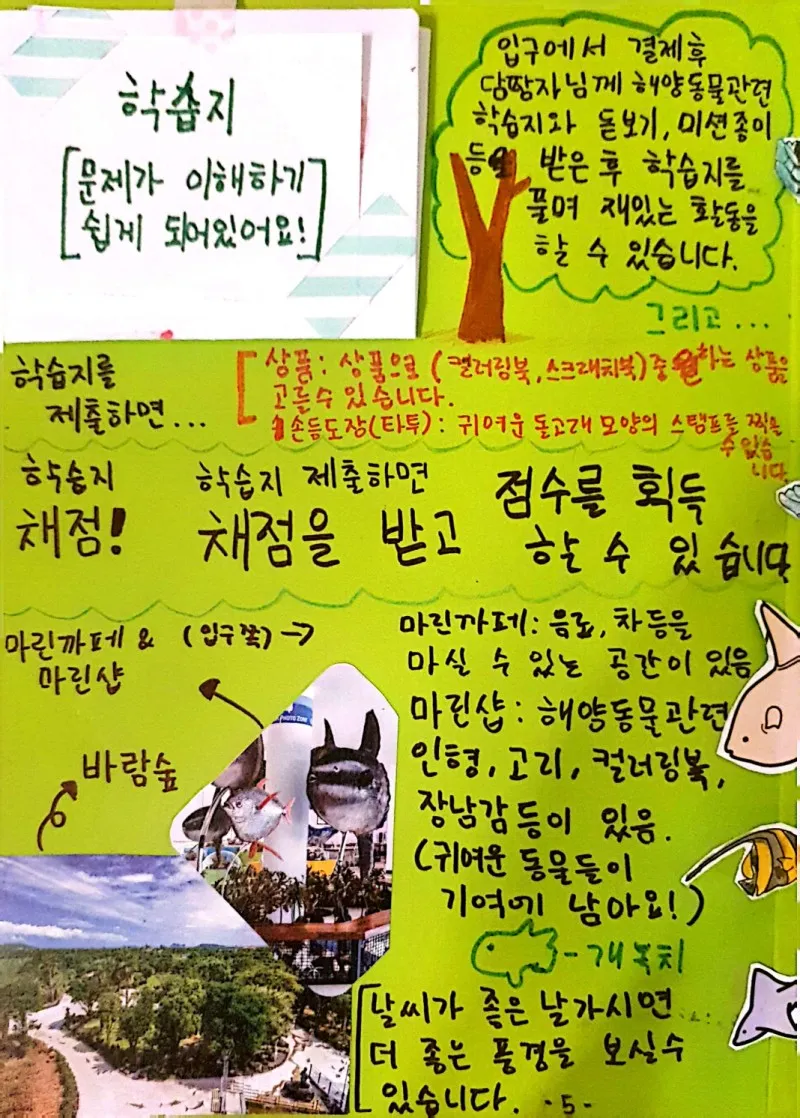 학습지
[문제가 이해하기
쉽게 되어있어요!]
입구에서 결제후
담땀자님께 해양동물관련
학습지와 돋보기, 미션종이
등 받은 후 학습지를
풀며 재있는 활동을
할 수 있습니다.
그리고...
학습지를
제출하면...
상품: 상품으로 (컬러링북, 스크래치북)중 원하는 상품을
고를수 있습니다.
손등도장(타투): 귀여운 돌고래 모양의 스탬프를 찍을
수 있습
니다
학습지
채점!
학습지 제출하면
채점을 받고
점수를 획득
할 수 있습니다
마린까페 & (입구쪽) →
마린샵
바람숲
PHOTO ZONE
마린까페: 음료, 차등을
마실 수 있는 공간이 있음
마린샵: 해양동물관련
인형, 고리, 컬러링북,
장난감등이 있음.
(귀여운 동물들이
기억에 남아요!)
-개복치
[날씨가 좋은 날가시면
더 좋은 풍경을 보실수
있습니다.
-5-